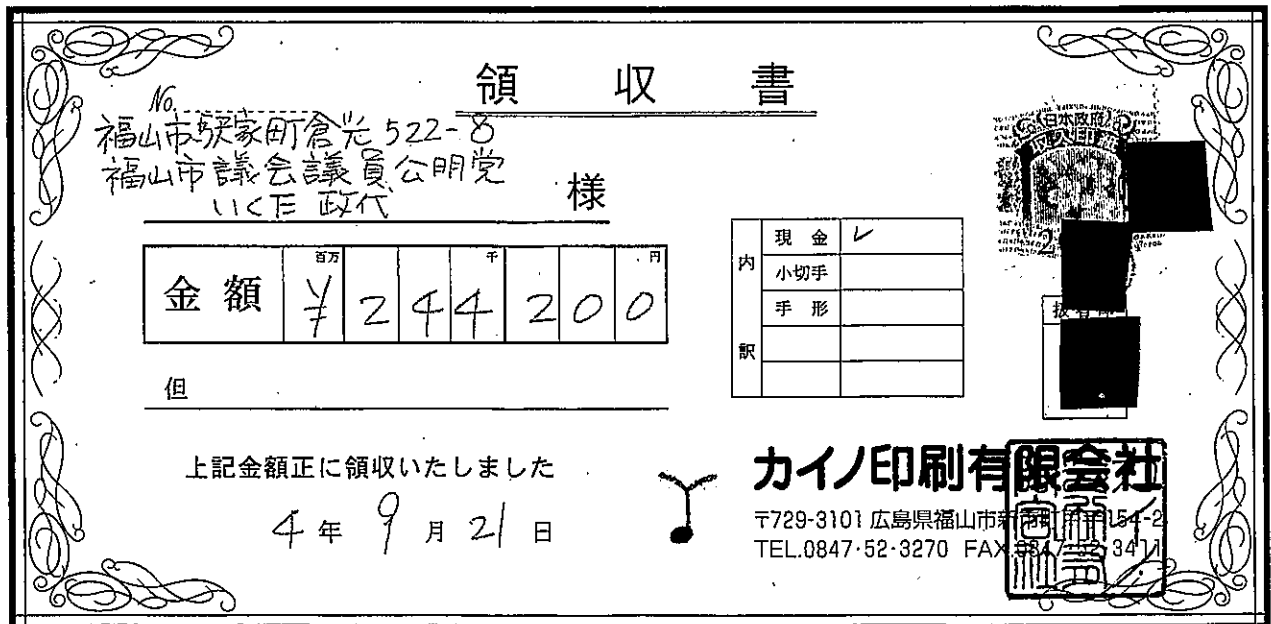 領収書
No.
福山市駅家町倉光522-8
福山市議会議員公明党
いくた 政代 様
金額 百万 千 円
¥244200
内訳
現金 レ
小切手
手形
但
上記金額正に領収いたしました
4年9月21日
日本政府
収入印紙
カイノ印刷有限会社
〒729-3101 広島県福山市新市町
TEL.0847・52・3270 FAX.0847・52・3411